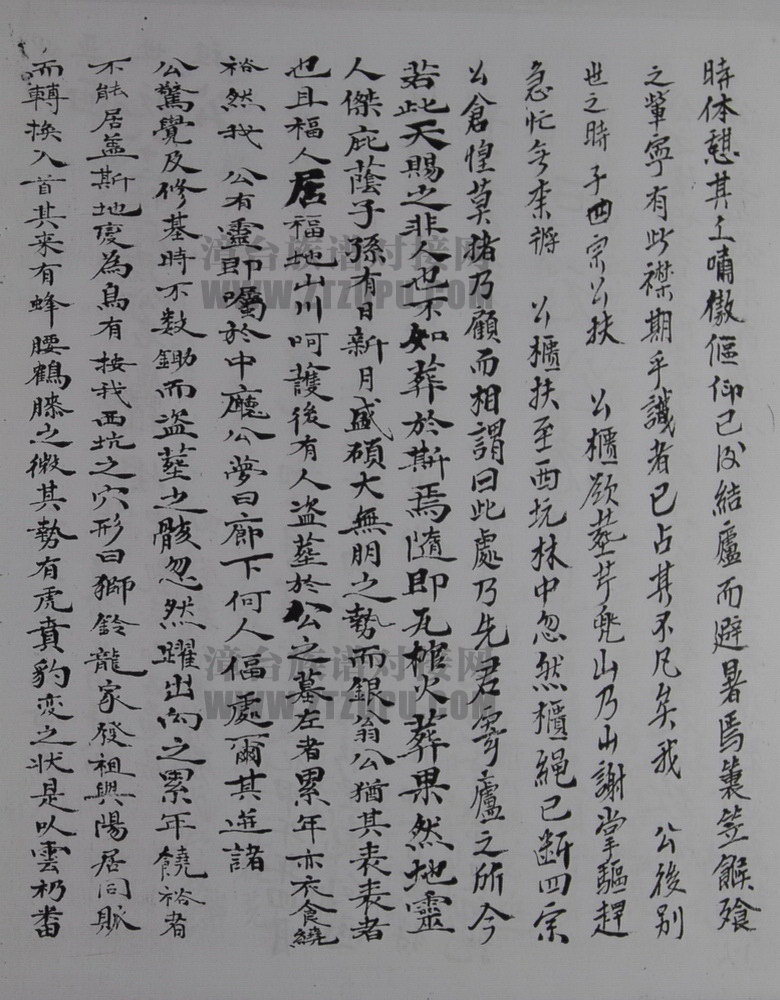 時体憇其上嘯傲傴仰已因結廬而避暑焉蓑笠餱飱
之輩寧有此襟期乎識者已占其不凡矣我 公後別
世之時子四宗公扶 公櫃欲塟芹兜山乃山謝掌驅趕
急忙無奈將 公櫃扶至西坑林中忽然櫃繩已断四宗
公倉惶莫措乃顧而相謂曰此處乃先君寄廬之所今
若此天賜之非人也不如葬於斯焉隨即瓦棺火葬果然地靈
人傑庇蔭子孫有日新月盛碩大無朋之勢而銀翁公猶其表表者
也且福人居福地山川呵護後有人盗塟於公之墓左者累年亦衣食繞
裕然我 公有靈即囑於中廳公夢曰廊下何人傴處爾其逆諸
公驚覺及修基時不数鋤而盗塟之骸忽然躍出向之累年饒裕者
不能居葢斯地虔為烏有按我西坑之穴形曰獅鈴龍家發祖與陽居同脈
而轉换入首其来有蜂腰鶴膝之微其勢有虎賁豹变之状是以雲礽番
漳台族谱对接网
WWW.ZTZUPU.COM
漳台族谱对接网
WWW.ZTZUPU.COM